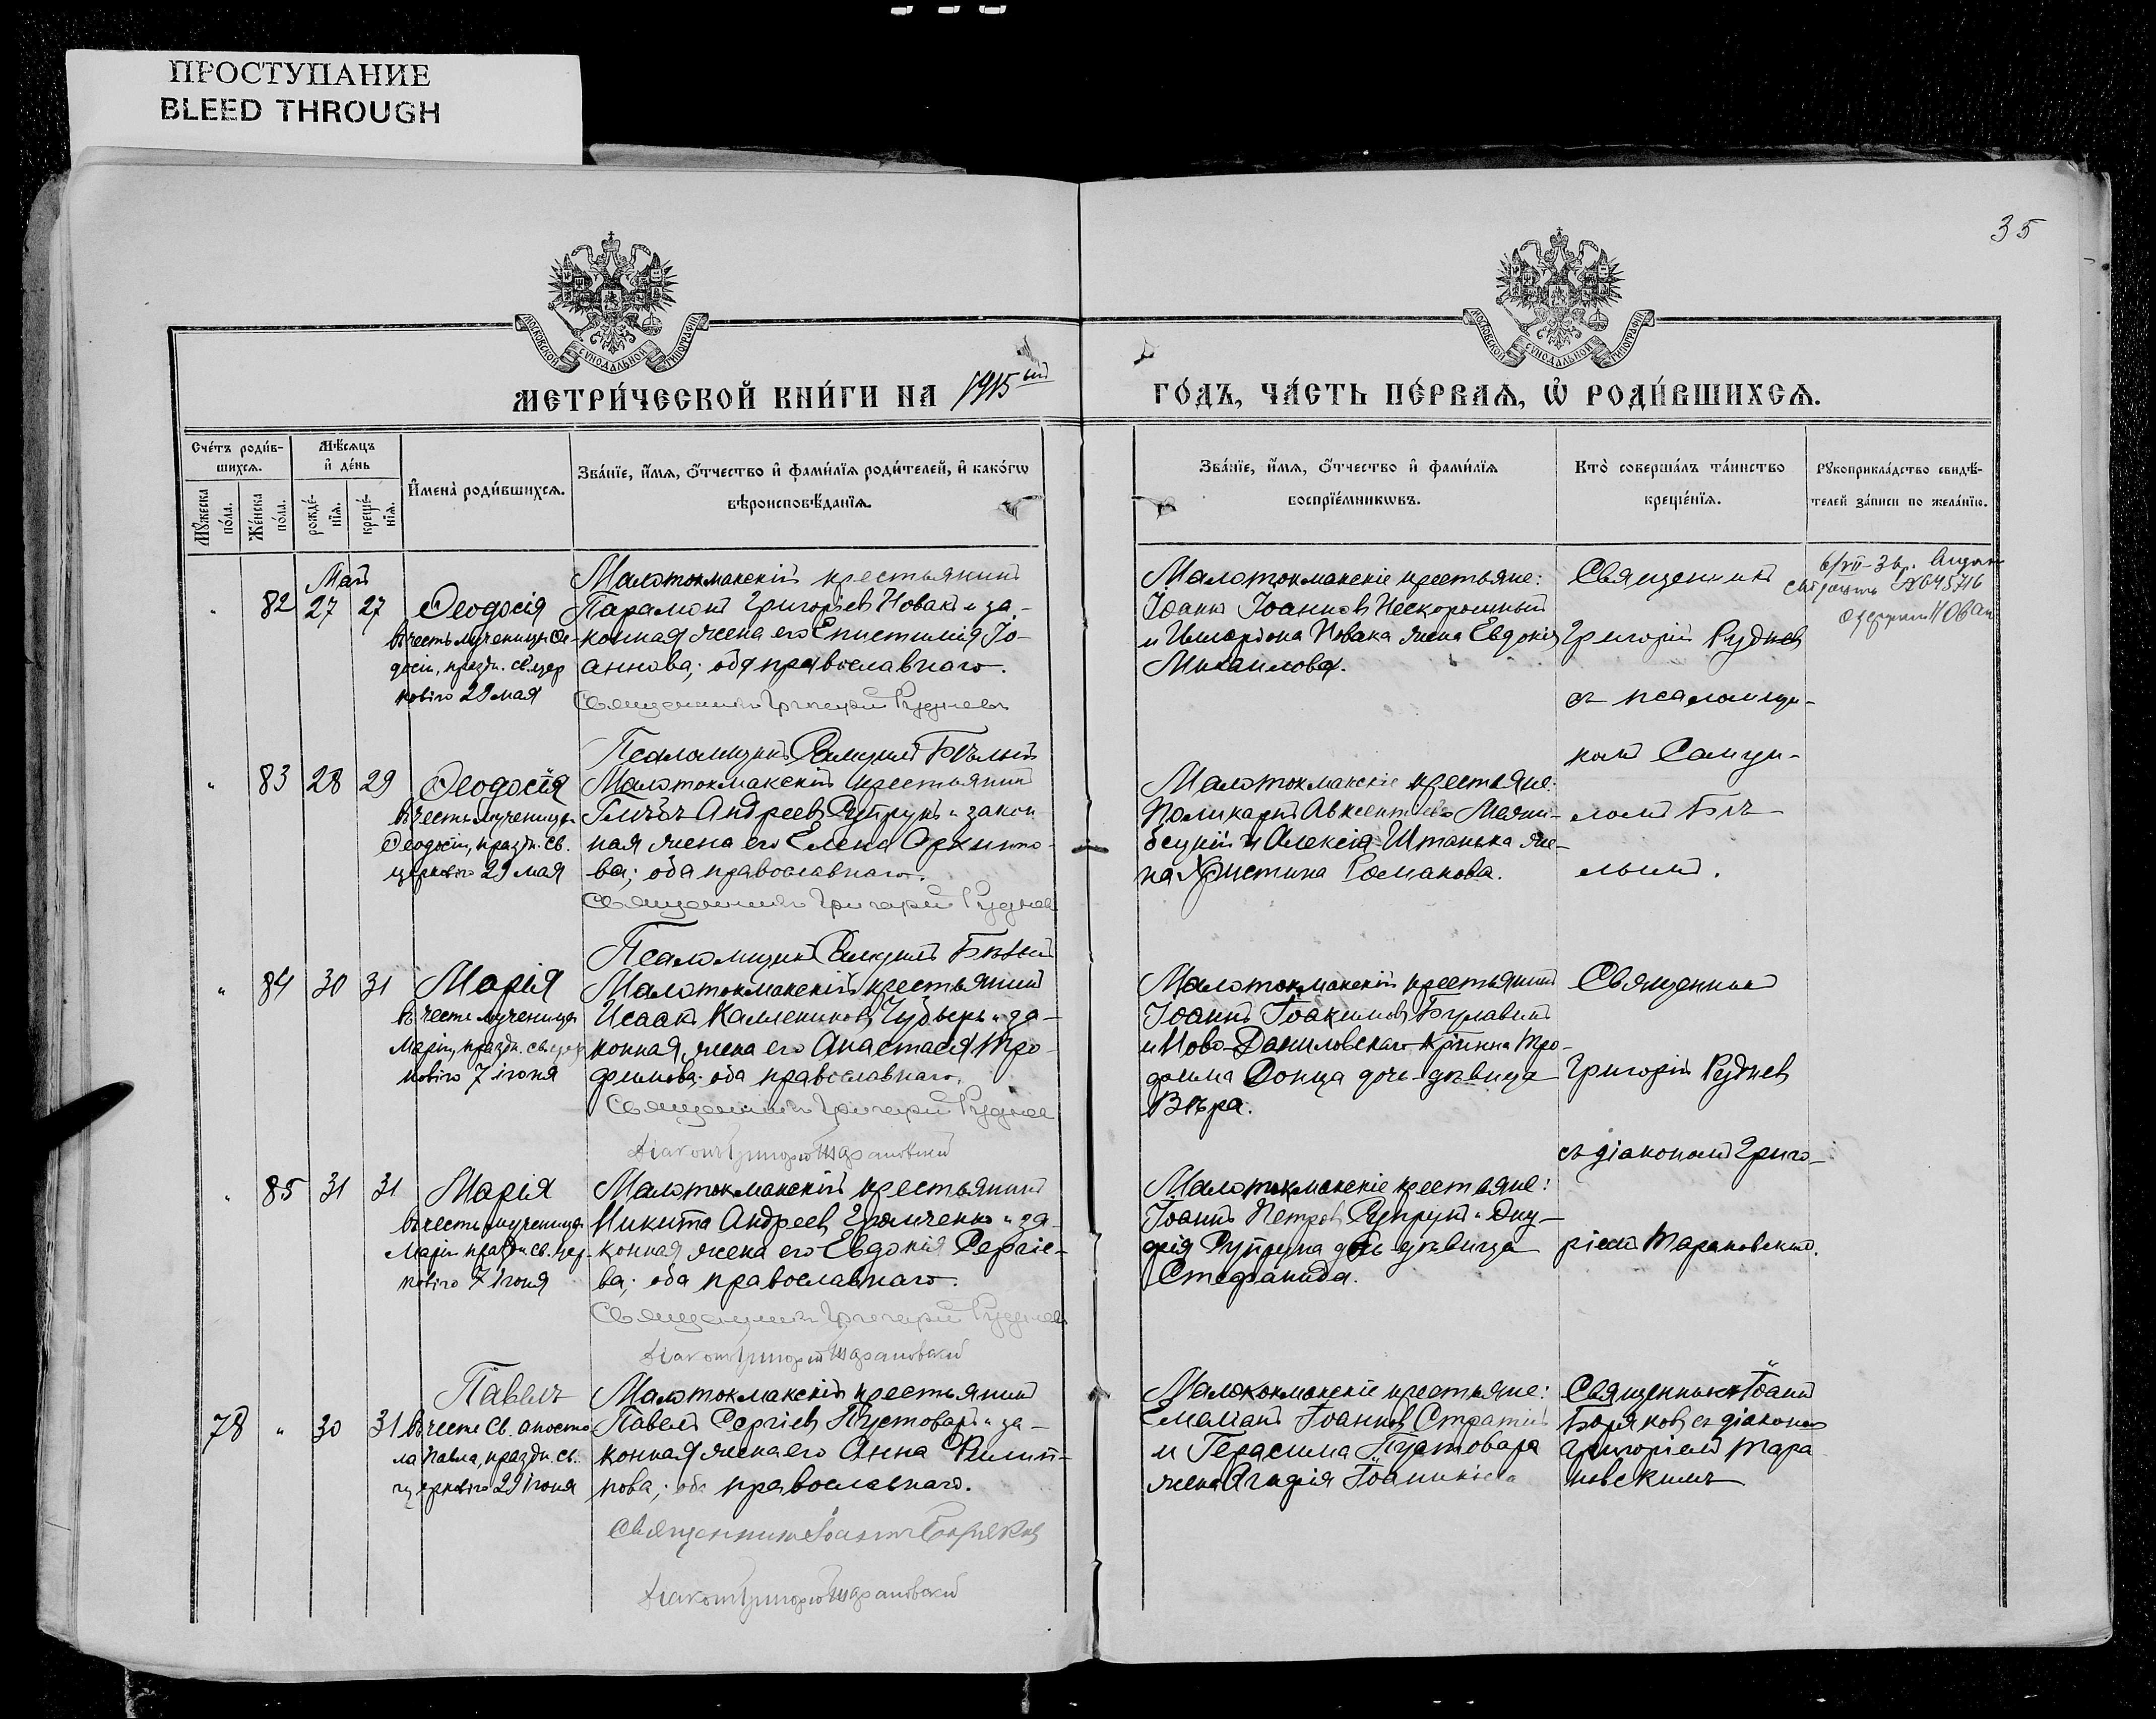 ПРОСТУПАНИЕ
BLEED THROUGH
35
МОСКОВСКОЙ СѴНОДАЛЬНОЙ ТИПОГРАФІИ
МОСКОВСКОЙ СѴНОДАЛЬНОЙ ТИПОГРАФІИ
МЕТРИ́ЧЕСКОЙ КНИ́ГИ НА 1915 ый
ГО́ДЪ, ЧА́СТЬ ПЕ́РВАѦ, Ѽ РОДИ́ВШИХСѦ.
Сче́тъ роди́в-
шихсѧ.
Мѣ́сѧцъ
и҆ де́нь
Мꙋ́жеска по́ла.
Же́нска по́ла.
рожде́-
нїѧ.
креще́-
нїѧ.
И҆мена̀ роди́вшихсѧ.
Зва́нїе, и҆́мѧ, ѻ҆́тчество и҆ фами́лїѧ роди́телей, и҆ како́гѡ
вѣроисповѣ́данїѧ.
Зва́нїе, и҆́мѧ, ѻ҆́тчество и҆ фами́лїѧ
воспрїе́мникѡвъ.
Кто̀ соверша́лъ та́инство
креще́нїѧ.
Рꙋкоприкла́дство свидѣ́-
телей за́писи по жела́нїю.
Май
" 82 27 27 Ѳеодосія
въ честь мученицы Ѳе-
досіи, праздн. св. цер
ковію 29 мая
Малотокмакскій крестьянинъ
Парамонъ Григоріевъ Новакъ и за-
конная жена его Епистимія Іо-
аннова; оба православнаго.
Священникъ Григорій Рудневъ
Псаломщикъ Самуилъ Бѣлый
Малотокмакскіе крестьяне:
Іоаннъ Іоанновъ Нескоромный
и Иларіона Новака жена Евдокія
Михаилова.
Священникъ
Григорій Рудневъ
съ псаломщи-
комъ Самуи-
ломъ Бѣ-
лымъ.
" 83 28 29 Ѳеодосія
въ честь мученицы
Ѳеодосіи, праздн. св.
церковію 29 мая
Малотокмакскій крестьянинъ
Глѣбъ Андреевъ Супрунъ и закон
ная жена его Елена Архипо-
ва; оба православнаго.
Священникъ Григорій Рудневъ
Псаломщикъ Самуилъ Бѣлый
Малотокмакскіе крестьяне:
Поликарпъ Авксентіевъ
и Алексія Штанька же-
на Христина Романова.
" 84 30 31 Марія
въ честь мученицы
Маріи, праздн. св. цер
ковію 7 іюня
Малотокмакскій крестьянинъ
Исаакъ Каллениковъ и за-
конная жена его Анастасія Тро-
фимова; оба православнаго.
Священникъ Григорій Рудневъ
Діаконъ Григорій Тарановскій
Малотокмакскій крестьянинъ
Іоаннъ Іоакимовъ Булавинъ
и Ново-Даниловскаго кр-нина Тро-
фима Донца дочь-дѣвица
Вѣра.
Священникъ
Григорій Рудневъ
съ діакономъ Григо-
ріемъ Тарановскимъ.
" 85 31 31 Марія
въ честь мученицы
Маріи праздн. св. цер-
ковію 7 іюня
Малотокмакскій крестьянинъ
Никита Андреевъ и за-
конная жена его Евдокія Сергіе-
ва; оба православнаго.
Священникъ Григорій Рудневъ
Діаконъ Григорій Тарановскій
Малотокмакскіе крестьяне:
Іоаннъ Петровъ Супрунъ и Ону-
фрія Супруна дочь-дѣвица
Стефанида.
78 " 30 31 Павелъ
въ честь св. апосто
ла Павла, праздн. св.
церковію 29 іюня
Малотокмакскій крестьянинъ
Павелъ Сергіевъ Пустоваръ и за-
конная жена его Анна Филип-
пова; оба православнаго.
Священникъ Іоаннъ Боряковъ
Діаконъ Григорій Тарановскій
Малотокмакскіе крестьяне:
Емеліанъ Іоанновъ
и Герасима Пустовара
жена Агафія Іоанникіева
Священникъ Іоаннъ
Боряковъ съ діакономъ
Григоріемъ Тара
новскимъ